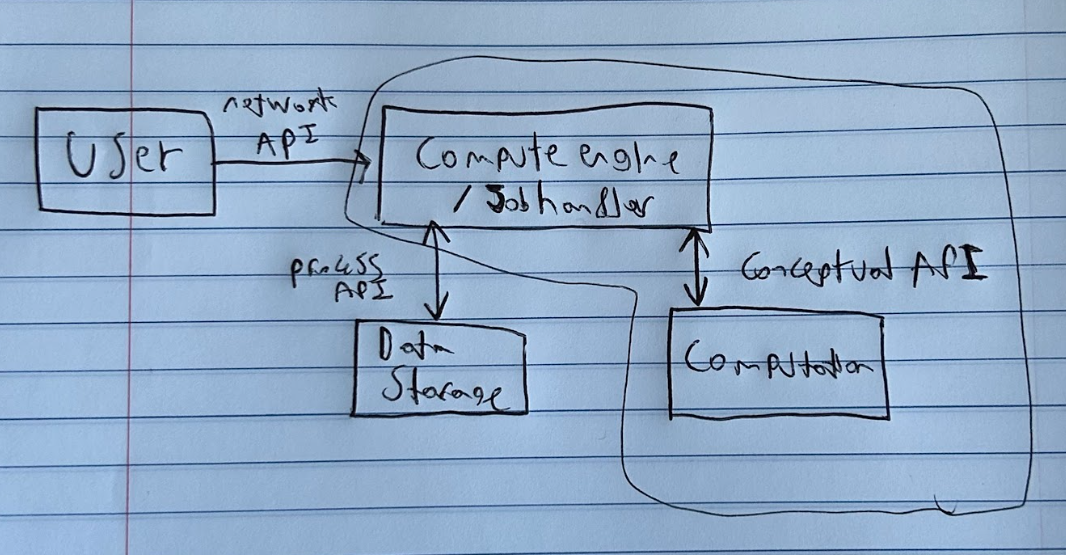 network
API
User
Compute engine
/ Jobhandler
process
API
Conceptual API
Data
Storage
Computation